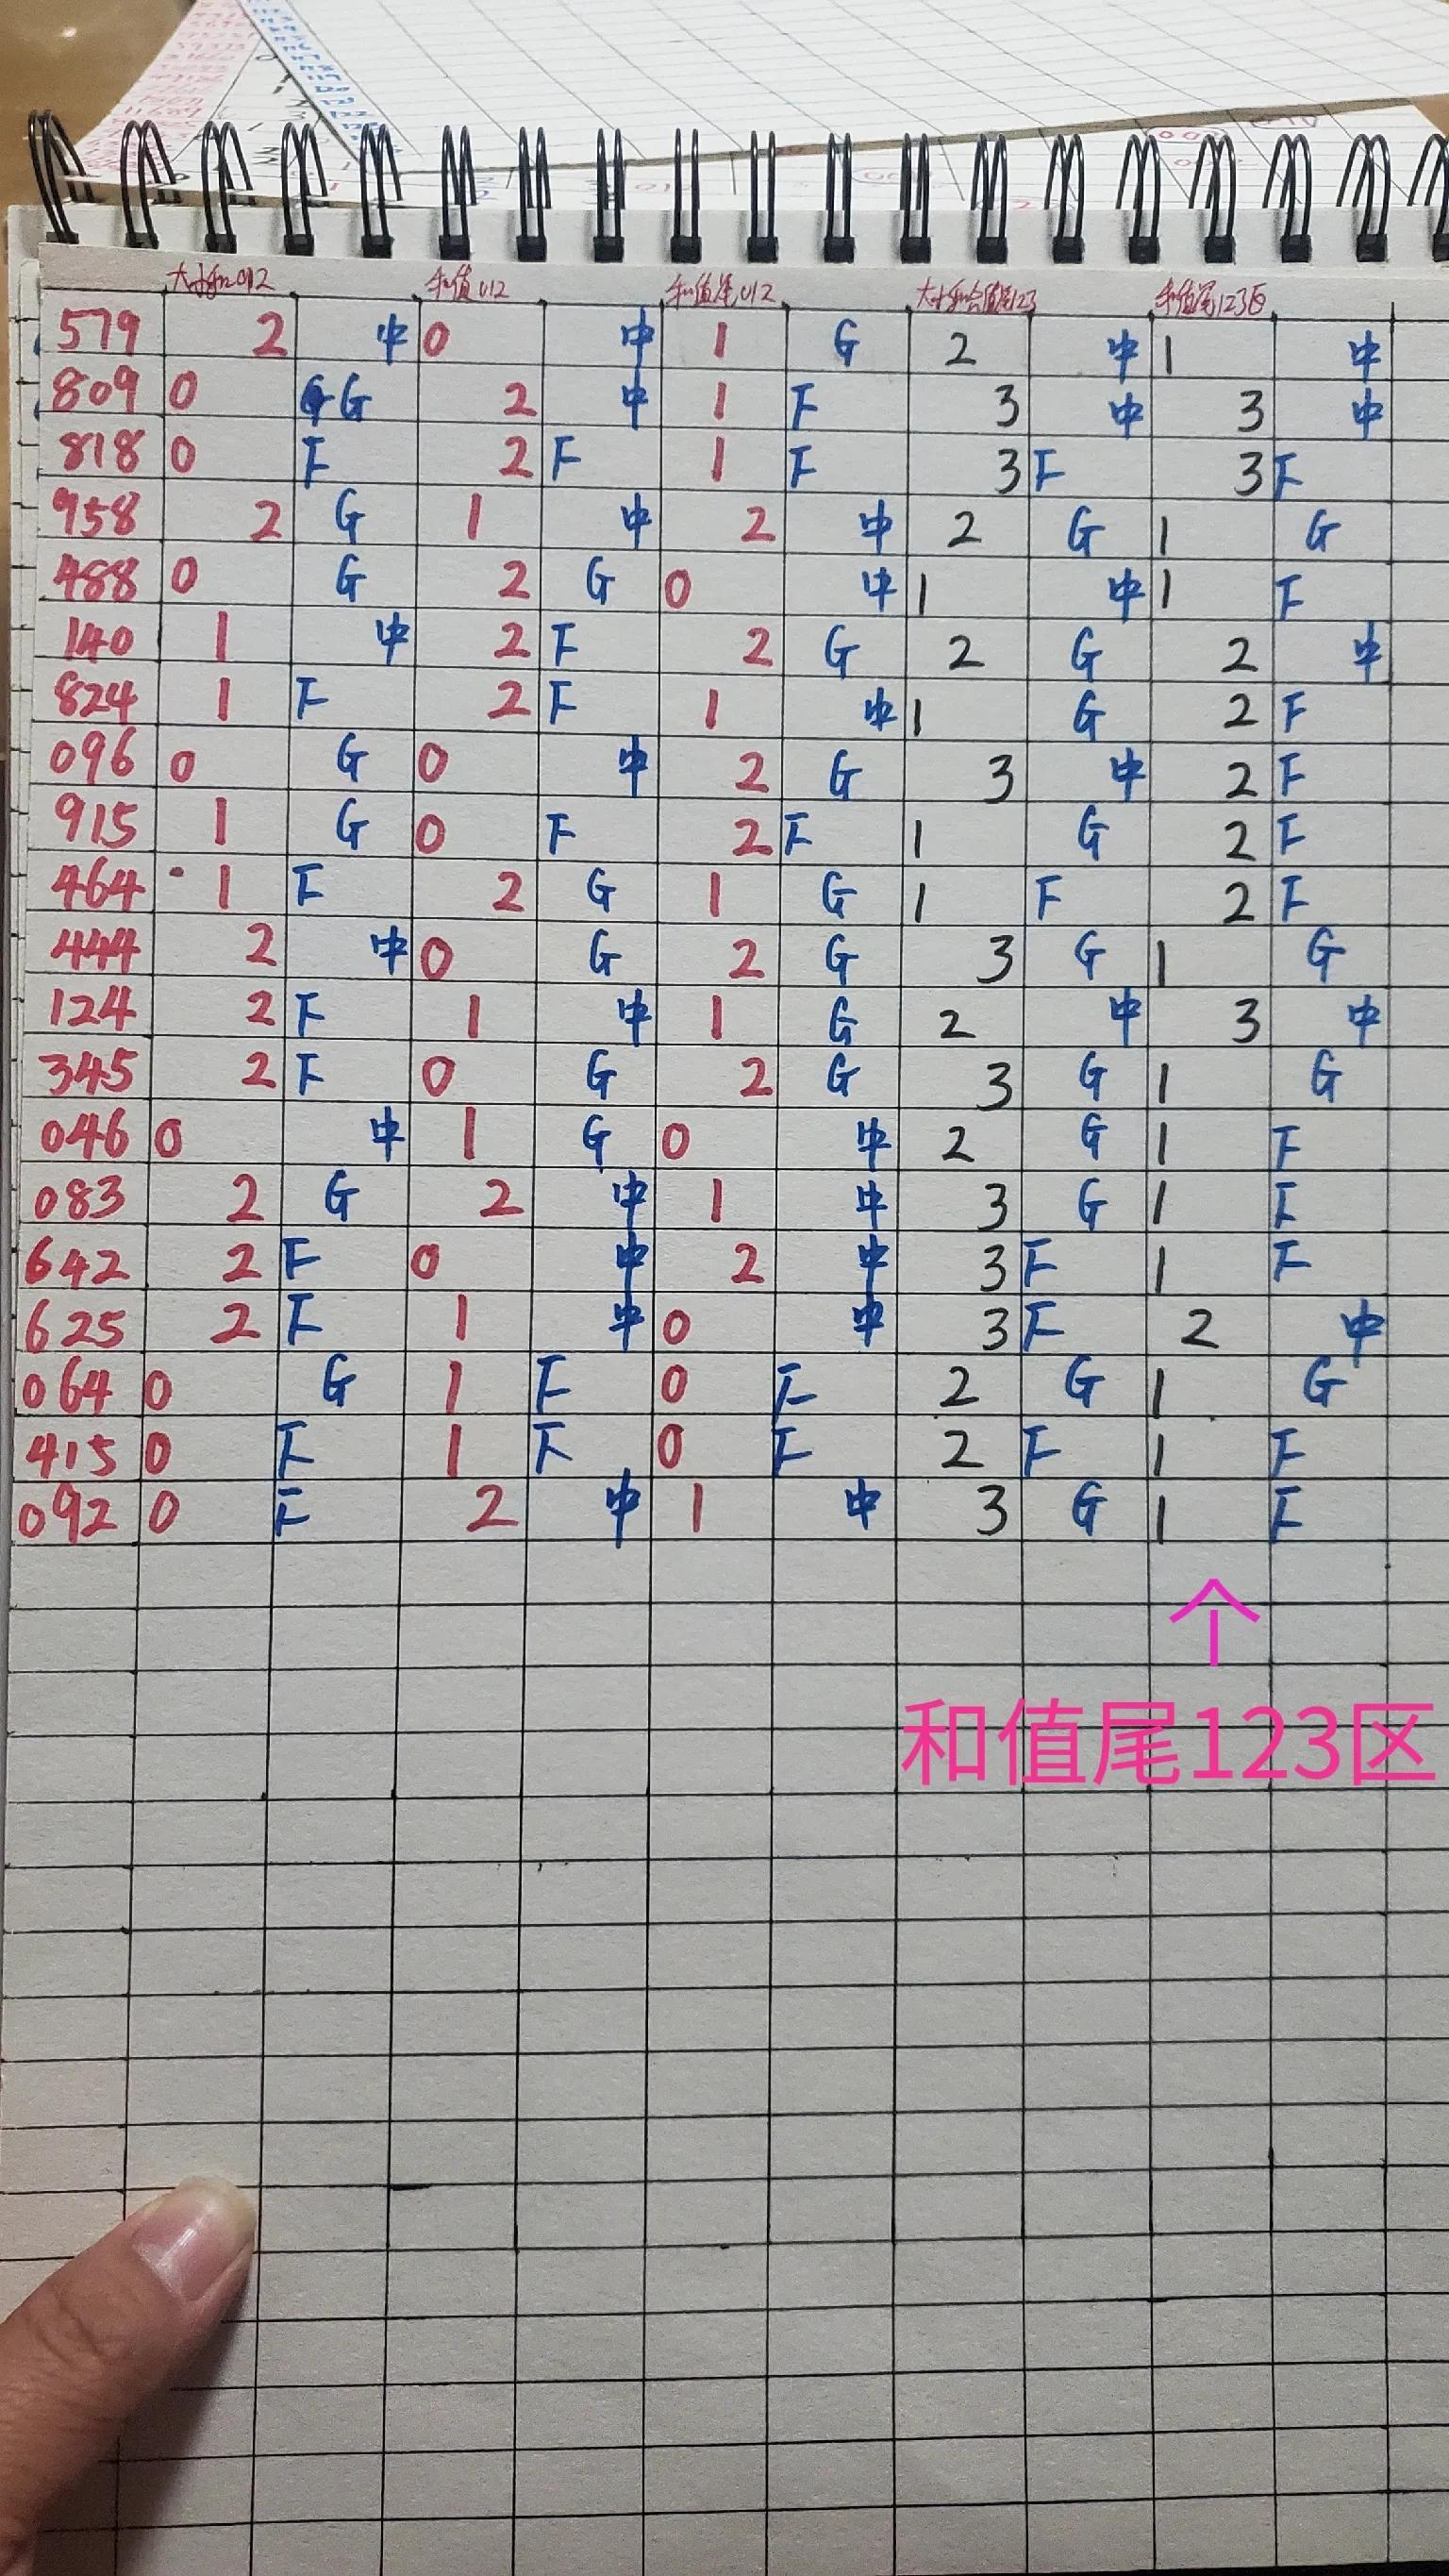 大小和012 和值012 和值尾012 大小和合值尾123 和值尾123区
579 2 中 0 中 1 G 2 中 1 中
809 0 G G 2 中 1 F 3 中 3 中
818 0 F 2 F 1 F 3 F 3 F
958 2 G 1 中 2 中 2 G 1 G
488 0 G 2 G 0 中 1 中 1 F
140 1 中 2 F 2 G 2 G 2 中
824 1 F 2 F 1 中 1 G 2 F
096 0 G 0 中 2 G 3 中 2 F
915 1 G 0 F 2 F 1 G 2 F
464 1 F 2 G 1 G 1 F 2 F
444 2 中 0 G 2 G 3 G 1 G
124 2 F 1 中 1 G 2 中 3 中
345 2 F 0 G 2 G 3 G 1 G
046 0 中 1 G 0 中 2 G 1 F
083 2 G 2 中 1 中 3 G 1 F
642 2 F 0 中 2 中 3 F 1 F
625 2 F 1 中 0 中 3 F 2 中
064 0 G 1 F 0 F 2 G 1 G
415 0 F 1 F 0 F 2 F 1 F
092 0 F 2 中 1 中 3 G 1 F
个
和值尾123区